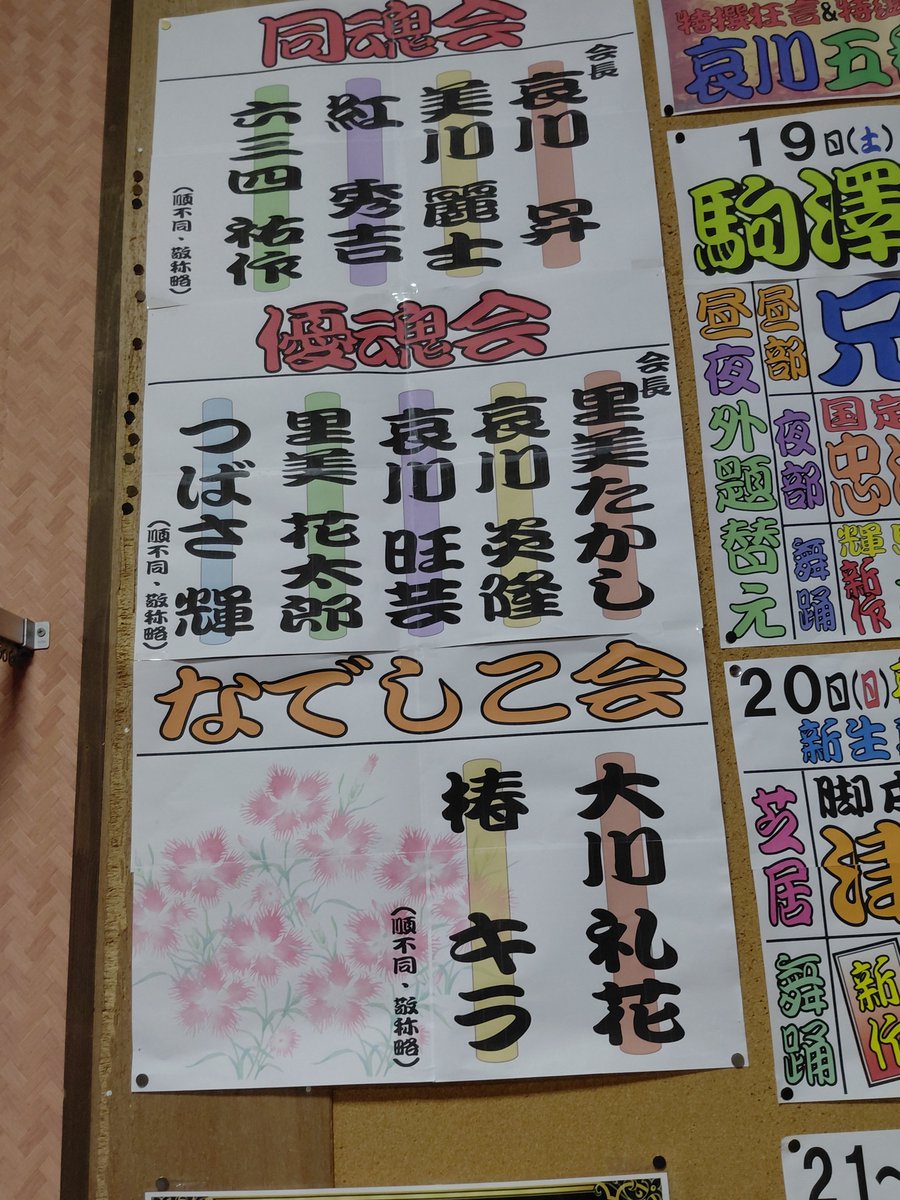 同魂会
会長
哀川 昇
美川 麗士
紅 秀吉
六三四 祐作
(順不同・敬称略)
優魂会
会長
里美たかし
哀川 炎隆
哀川 旺芸
里美 花太郎
つばさ 輝
(順不同・敬称略)
なでしこ会
大川 礼花
椿 キラ
(順不同・敬称略)
特撰狂言&特選
哀川五
19日(土)
駒澤
昼夜外題替え
昼部
夜部
国定
忠
舞踊
輝
新作
20日(日)
新生
芝居
脚
津
舞踊
新作
21~